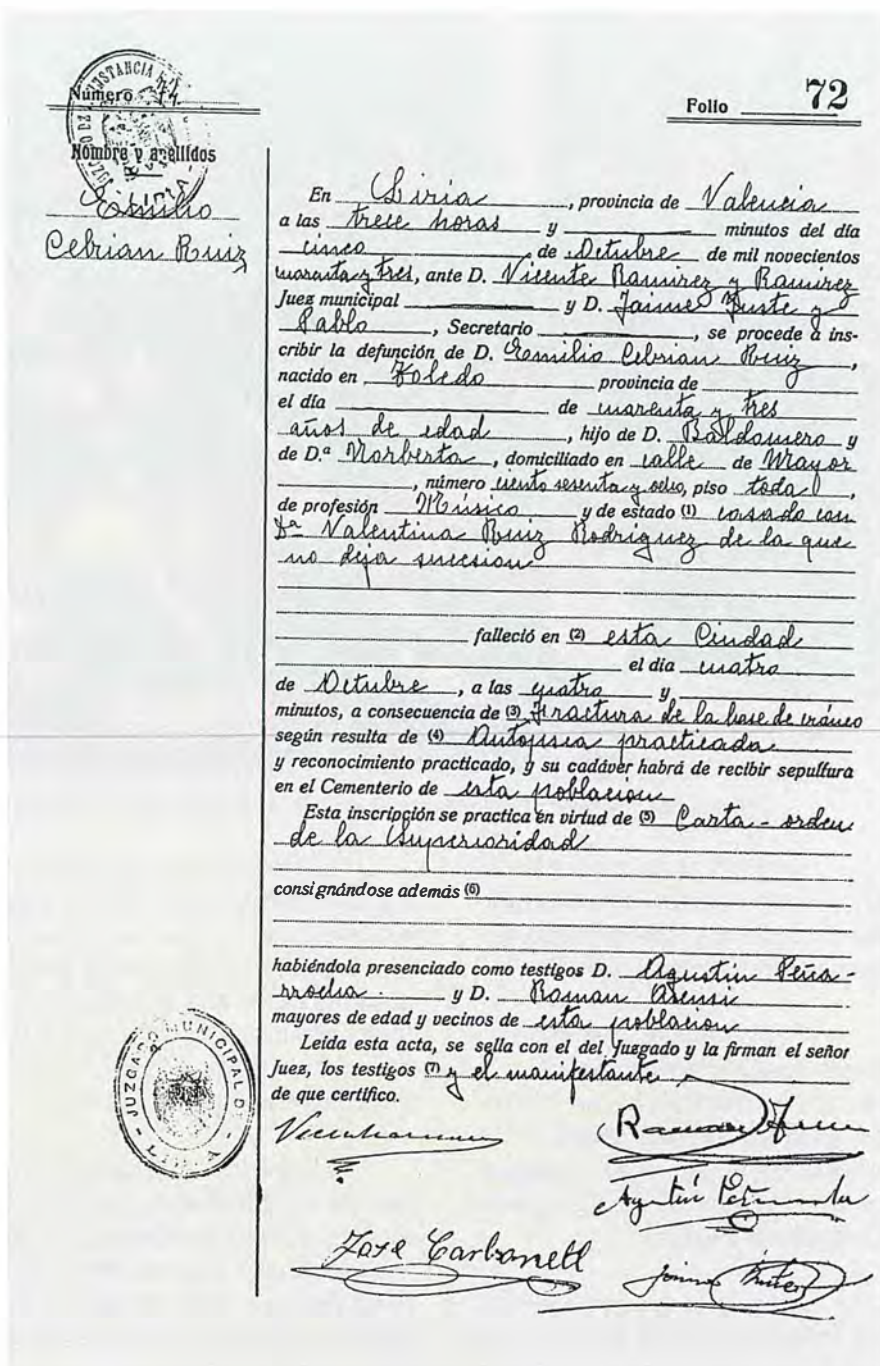 Número 74
Folio 72
Nombre y apellidos
Emilio
Cebrian Ruiz
En Liria, provincia de Valencia
a las trece horas y minutos del día
cinco de Octubre de mil novecientos
cuarenta y tres, ante D. Vicente Ramirez y Ramirez
Juez municipal y D. Jaime Juste y
Pablo, Secretario, se procede a ins-
cribir la defunción de D. Emilio Cebrian Ruiz,
nacido en Toledo provincia de
el día de cuarenta y tres
años de edad, hijo de D. Baldomero y
de D.ª Norberta, domiciliado en calle de Mayor
, número ciento sesenta y ocho, piso todo,
de profesión Músico y de estado (1) casado con
Dª Valentina Ruiz Rodriguez de la que
no deja sucesion
falleció en (2) esta Ciudad
el día cuatro
de Octubre, a las cuatro y
minutos, a consecuencia de (3) Fractura de la base de cráneo
según resulta de (4) Autopsia practicada
y reconocimiento practicado, y su cadáver habrá de recibir sepultura
en el Cementerio de esta poblacion
Esta inscripción se practica en virtud de (5) Carta - orden
de la Superioridad
consignándose además (6)
habiéndola presenciado como testigos D. Agustin Peña-
rrocha. y D. Roman Asensi
mayores de edad y vecinos de esta poblacion
Leída esta acta, se sella con el del Juzgado y la firman el señor
Juez, los testigos (7) y el manifestante,
de que certifico.
JUZGADO MUNICIPAL DE
LIRIA
Jose Carbonell